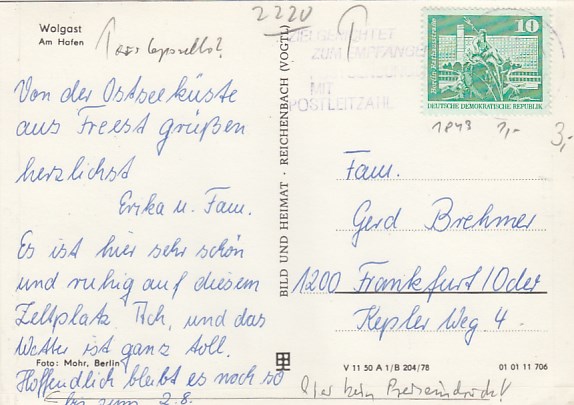 Wolgast
Am Hafen
2220
Von der Ostseeküste
aus Freest grüßen
herzlichst
Erika u. Fam.
Es ist hier sehr schön
und ruhig auf diesem
Zeltplatz. Ach, und das
Wetter ist ganz toll.
Foto: Mohr, Berlin
Hoffendlich bleibt es noch so
bis zum 2.8.
BILD UND HEIMAT · REICHENBACH (VOGTL)
ZUM EMPFÄNGER
MIT
POSTLEITZAHL
10
DEUTSCHE DEMOKRATISCHE REPUBLIK
1843 1,-
3,-
Fam.
Gerd Brehmer
1200 Frankfurt/Oder
Kepler Weg 4
V 11 50 A 1/B 204/78
01 01 11 706